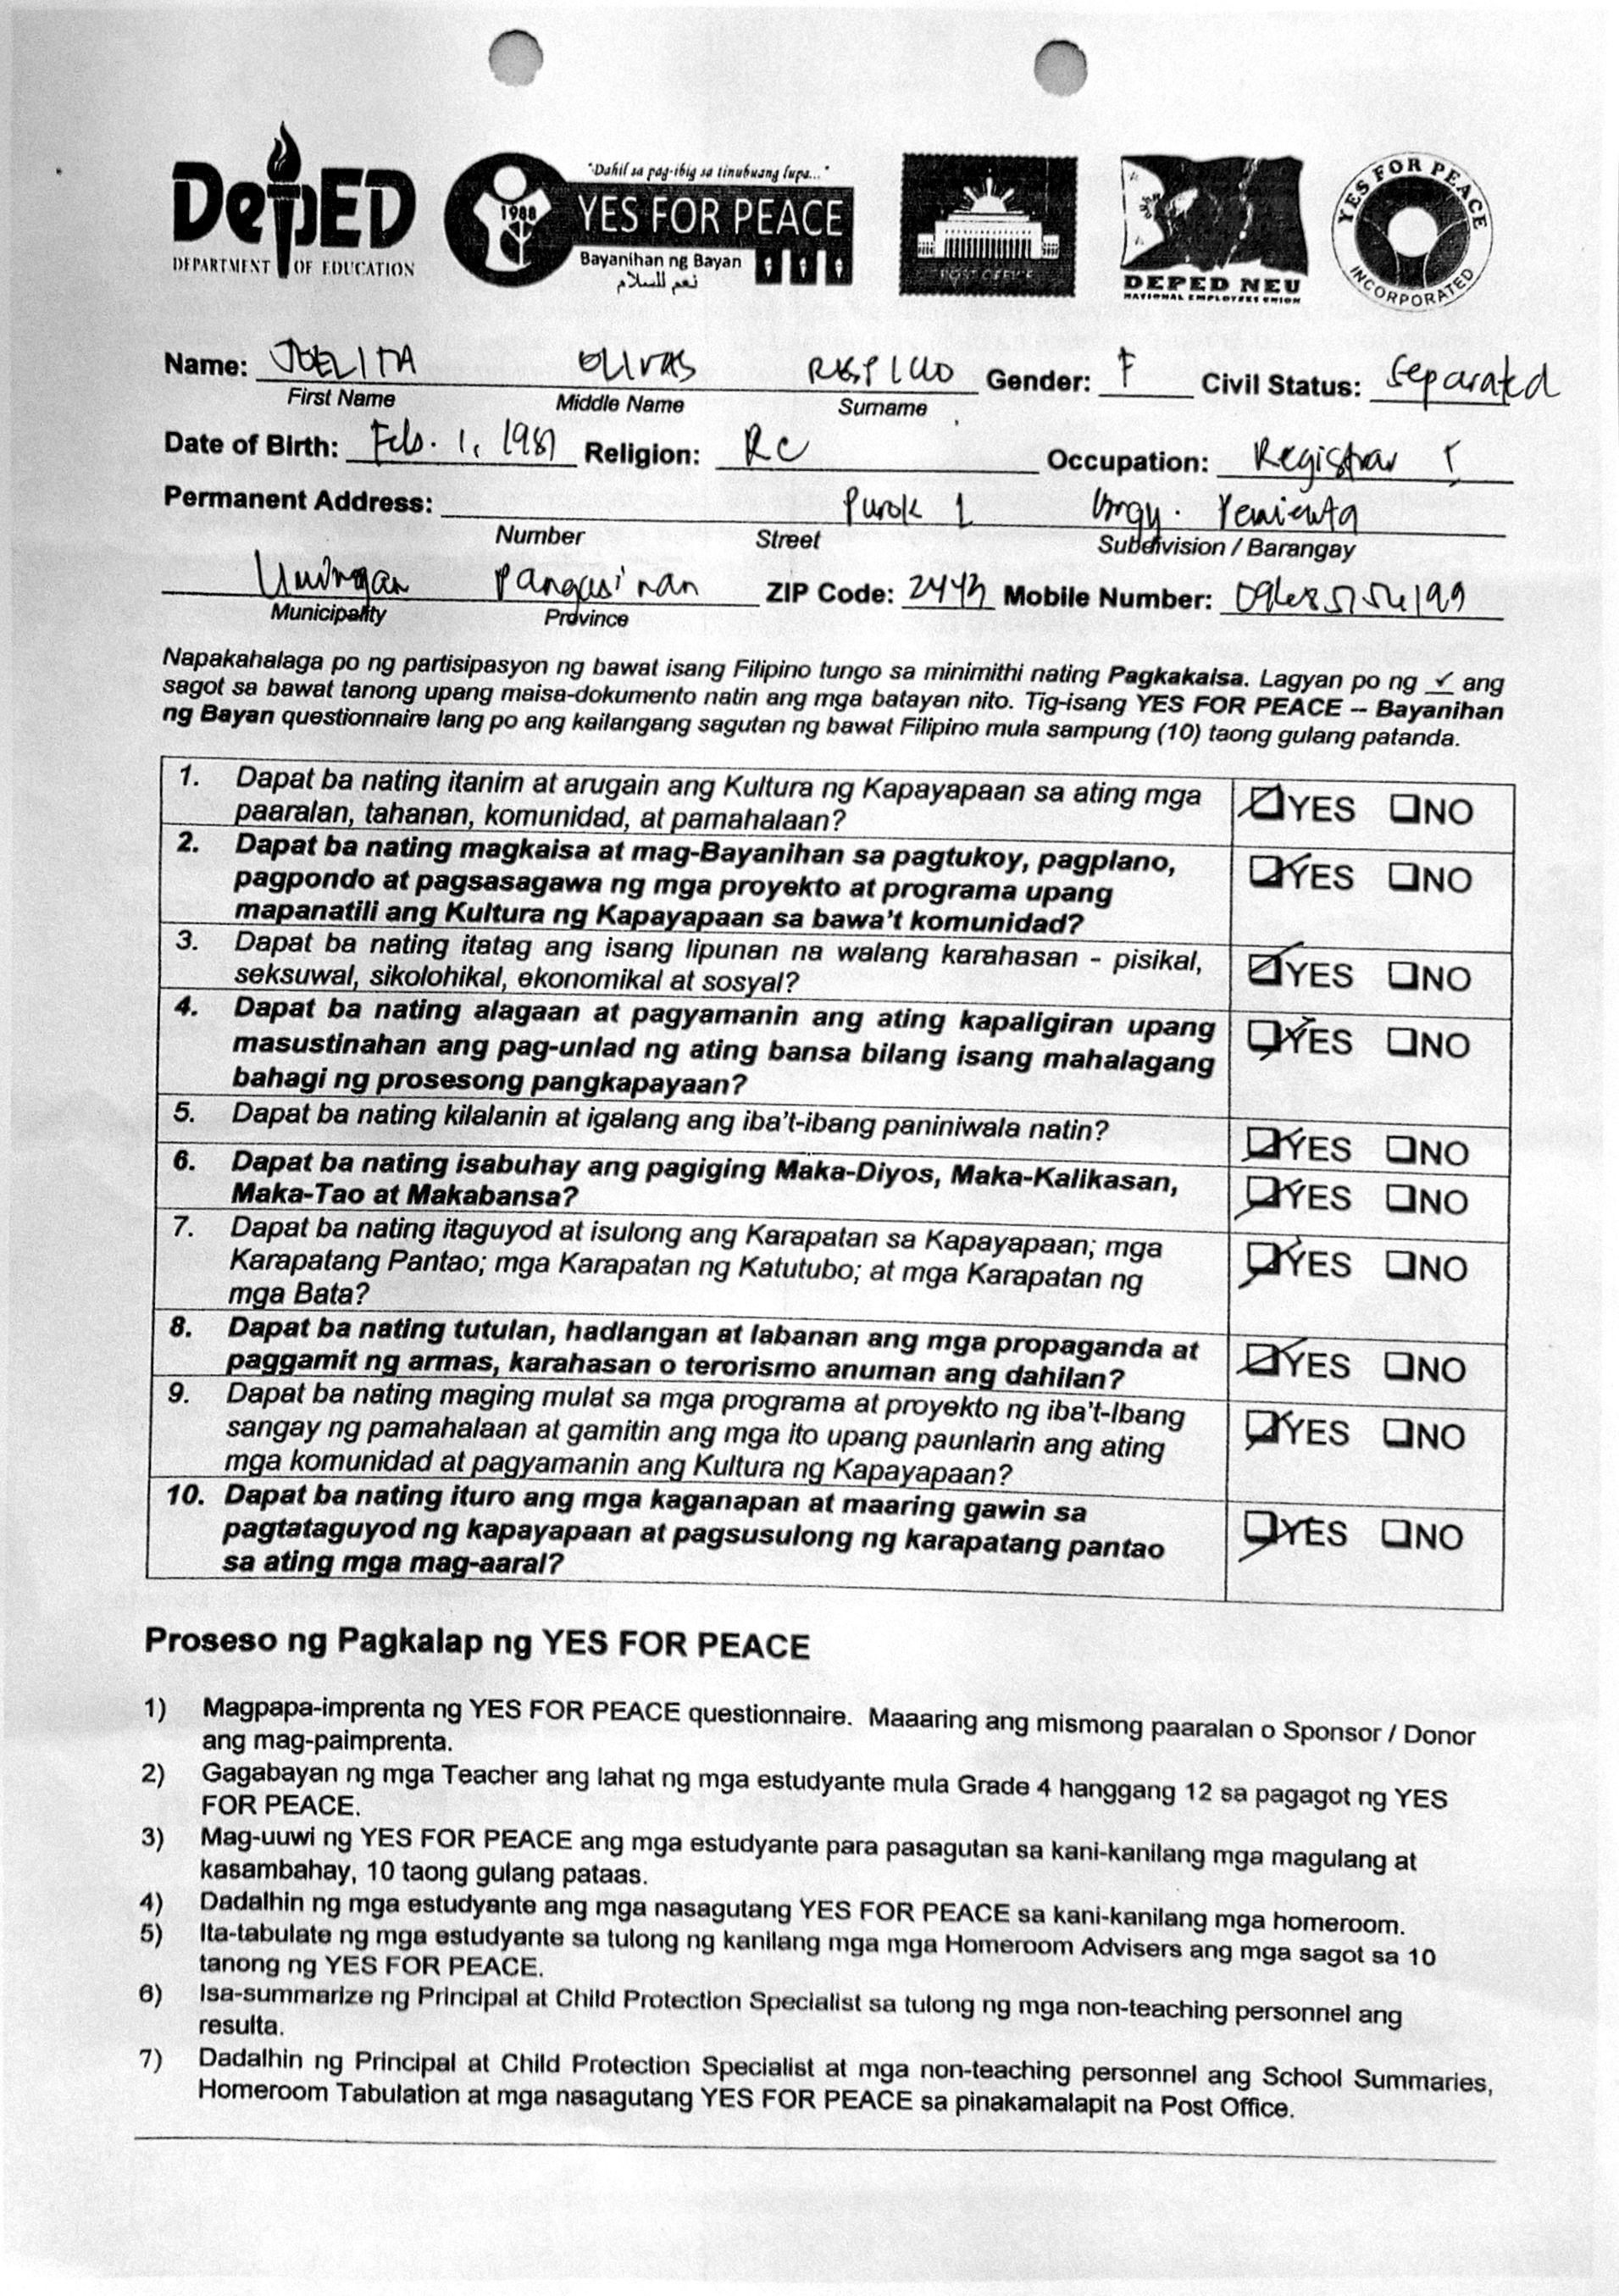 DepED
DEPARTMENT OF EDUCATION
"Dahil sa pag-ibig sa tinubuang lupa..."
1988
YES FOR PEACE
Bayanihan ng Bayan
نعم للسلام
POST OFFICE
DEPED NEU
NATIONAL EMPLOYEES UNION
YES FOR PEACE
INCORPORATED
Name: JOELITA OLIVAS RESPICIO Gender: F Civil Status: Separated
First Name Middle Name Surname
Date of Birth: Feb. 1, 1981 Religion: RC Occupation: Registrar I
Permanent Address: Purok 1 Brgy.
Number Street Subdivision / Barangay
Umingan Pangasinan ZIP Code: 2443 Mobile Number:
Municipality Province
Napakahalaga po ng partisipasyon ng bawat isang Filipino tungo sa minimithi nating Pagkakaisa. Lagyan po ng ✓ ang
sagot sa bawat tanong upang maisa-dokumento natin ang mga batayan nito. Tig-isang YES FOR PEACE -- Bayanihan
ng Bayan questionnaire lang po ang kailangang sagutan ng bawat Filipino mula sampung (10) taong gulang patanda.
1. Dapat ba nating itanim at arugain ang Kultura ng Kapayapaan sa ating mga
paaralan, tahanan, komunidad, at pamahalaan?
☑YES ☐NO
2. Dapat ba nating magkaisa at mag-Bayanihan sa pagtukoy, pagplano,
pagpondo at pagsasagawa ng mga proyekto at programa upang
mapanatili ang Kultura ng Kapayapaan sa bawa't komunidad?
☑YES ☐NO
3. Dapat ba nating itatag ang isang lipunan na walang karahasan - pisikal,
seksuwal, sikolohikal, ekonomikal at sosyal?
☑YES ☐NO
4. Dapat ba nating alagaan at pagyamanin ang ating kapaligiran upang
masustinahan ang pag-unlad ng ating bansa bilang isang mahalagang
bahagi ng prosesong pangkapayaan?
☑YES ☐NO
5. Dapat ba nating kilalanin at igalang ang iba't-ibang paniniwala natin?
☑YES ☐NO
6. Dapat ba nating isabuhay ang pagiging Maka-Diyos, Maka-Kalikasan,
Maka-Tao at Makabansa?
☑YES ☐NO
7. Dapat ba nating itaguyod at isulong ang Karapatan sa Kapayapaan; mga
Karapatang Pantao; mga Karapatan ng Katutubo; at mga Karapatan ng
mga Bata?
☑YES ☐NO
8. Dapat ba nating tutulan, hadlangan at labanan ang mga propaganda at
paggamit ng armas, karahasan o terorismo anuman ang dahilan?
☑YES ☐NO
9. Dapat ba nating maging mulat sa mga programa at proyekto ng iba't-Ibang
sangay ng pamahalaan at gamitin ang mga ito upang paunlarin ang ating
mga komunidad at pagyamanin ang Kultura ng Kapayapaan?
☑YES ☐NO
10. Dapat ba nating ituro ang mga kaganapan at maaring gawin sa
pagtataguyod ng kapayapaan at pagsusulong ng karapatang pantao
sa ating mga mag-aaral?
☑YES ☐NO
Proseso ng Pagkalap ng YES FOR PEACE
1) Magpapa-imprenta ng YES FOR PEACE questionnaire. Maaaring ang mismong paaralan o Sponsor / Donor
ang mag-paimprenta.
2) Gagabayan ng mga Teacher ang lahat ng mga estudyante mula Grade 4 hanggang 12 sa pagagot ng YES
FOR PEACE.
3) Mag-uuwi ng YES FOR PEACE ang mga estudyante para pasagutan sa kani-kanilang mga magulang at
kasambahay, 10 taong gulang pataas.
4) Dadalhin ng mga estudyante ang mga nasagutang YES FOR PEACE sa kani-kanilang mga homeroom.
5) Ita-tabulate ng mga estudyante sa tulong ng kanilang mga mga Homeroom Advisers ang mga sagot sa 10
tanong ng YES FOR PEACE.
6) Isa-summarize ng Principal at Child Protection Specialist sa tulong ng mga non-teaching personnel ang
resulta.
7) Dadalhin ng Principal at Child Protection Specialist at mga non-teaching personnel ang School Summaries,
Homeroom Tabulation at mga nasagutang YES FOR PEACE sa pinakamalapit na Post Office.